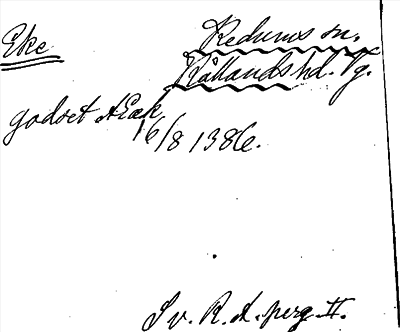 Eke
Redums sn.
Kållands hd. Vg.
godset Æek
16/8 1386.
Sv. R. A. perg. II.